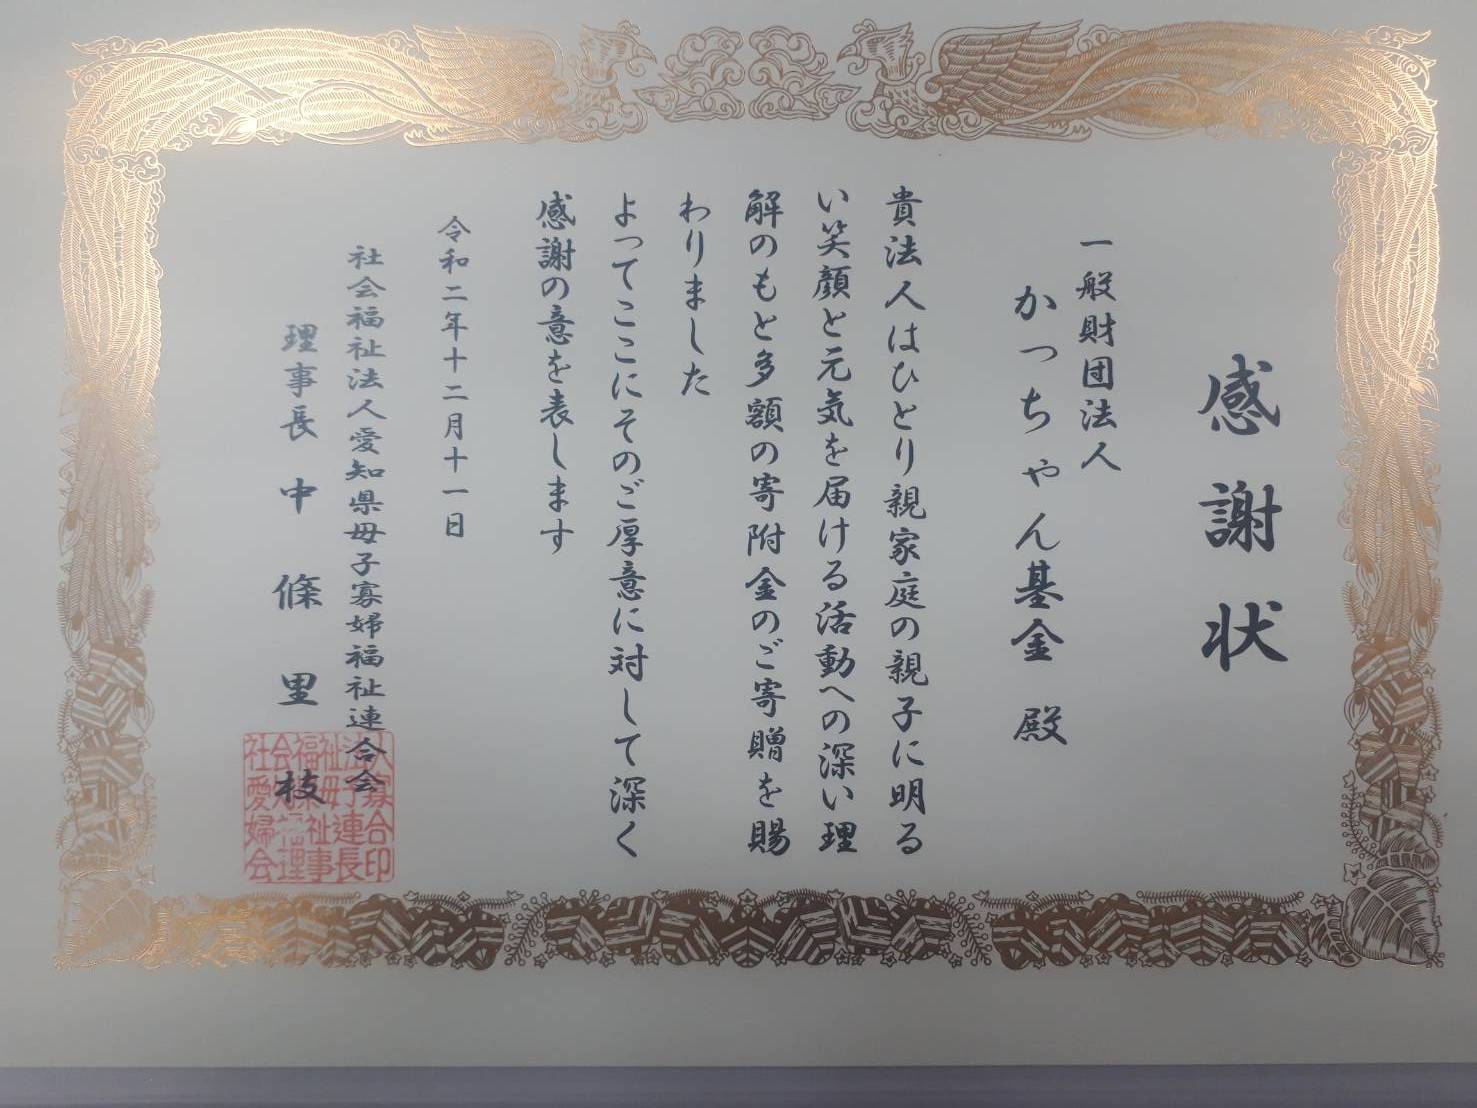 感謝状
一般財団法人
かっちゃん基金 殿
貴法人はひとり親家庭の親子に明る
い笑顔と元気を届ける活動への深い理
解のもと多額の寄附金のご寄贈を賜
わりました
よってここにそのご厚意に対して深く
感謝の意を表します
令和二年十二月十一日
社会福祉法人愛知県母子寡婦福祉連合会
理事長 中條里枝
社会福祉法人
愛知県母子寡
婦福祉連合
会理事長印